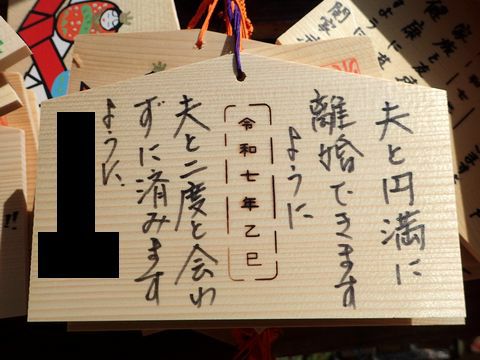 夫と円満に
離婚できます
ように
令和七年乙巳
夫と二度と会わ
ずに済みます
ように